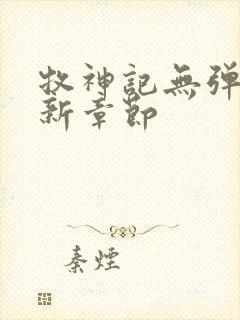 牧神記無彈
新章節
秦煙